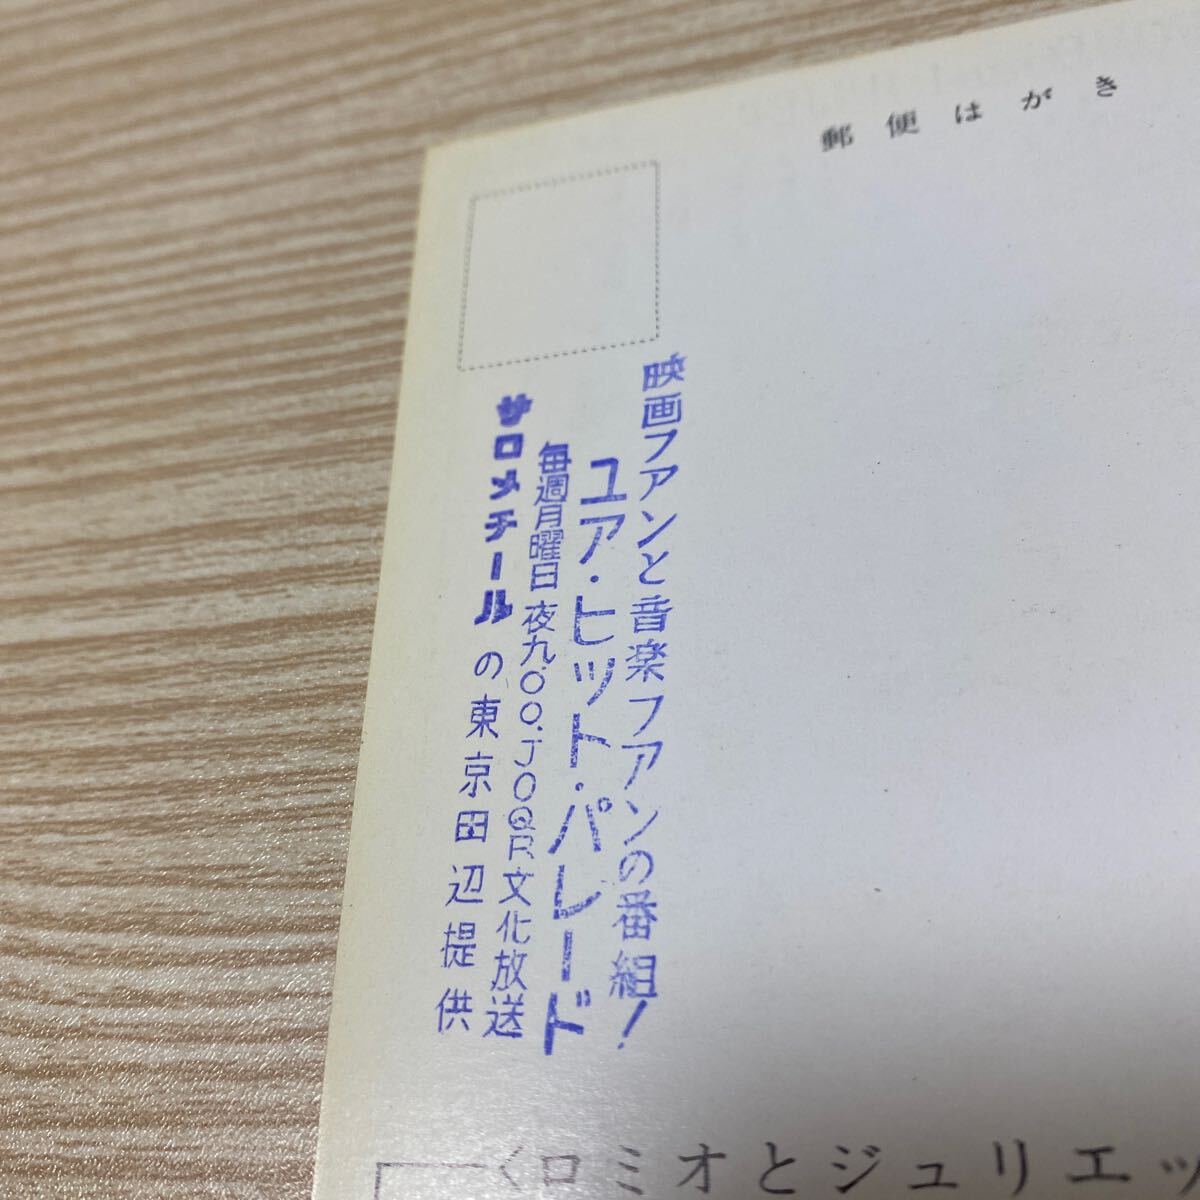 郵便はがき
映画フアンと音楽フアンの番組!
ユア・ヒット・パレード
毎週月曜日夜九.00.JOQR文化放送
サロメチールの東京田辺提供
〈ロミオとジュリエッ